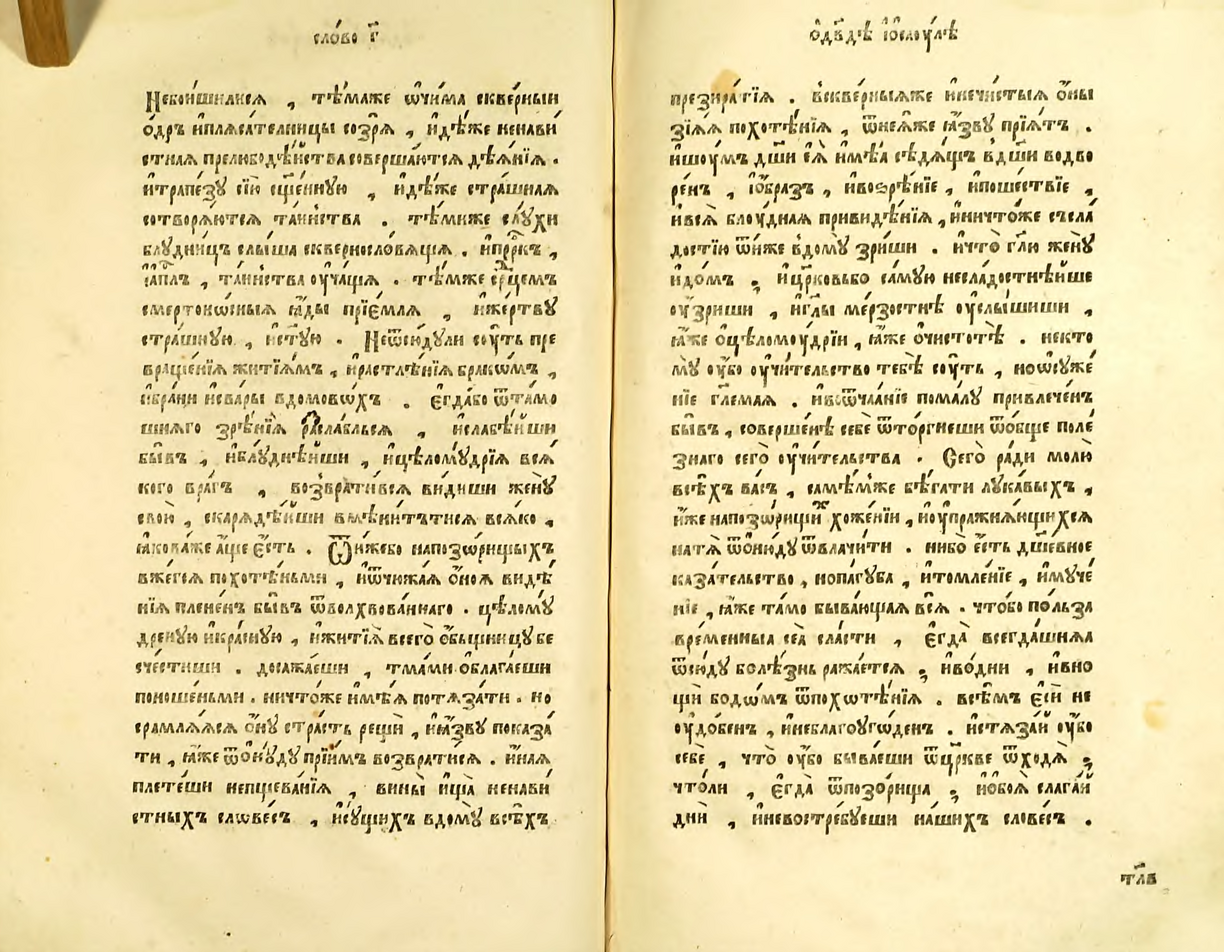 сло́во г҃
Небои́шилися , тѣ́маже ѡ҆чи́ма скве́рныи
ѻ҆́дръ и҆плѧса́телницы созрѧ̀ , и҆дѣ́же ненави
стнаѧ прелюбодѣ́йства совершаю́тсѧ дѣѧ́нїѧ .
и҆трапе́зу сїю̀ сщ҃е́нную , и҆дѣ́же стра́шнаѧ
сотворѧ́ютсѧ та́инства . тѣ́миже слу́хи
блудни́цъ слы́ша скверносло́вѧщаѧ . и҆прⷪ҇ркъ ,
і҆а҆пⷭ҇лъ , та́инства оу҆ча́щаѧ . тѣ́мже се́рⷣцемъ
смертоно́сныѧ ꙗ҆́ды прїе́млѧ , и҆же́ртву
стра́шную , и҆ст҃у́ю . Неѿсю́дули сꙋ́ть пре
враще́нїѧ житїѧ́мъ , и҆растлѣ́нїѧ бра́комъ ,
и҆бра́ни исва́ры вдомово́хъ . є҆гда́бо ѿта́мо
шнѧго зрѣ́нїѧ разсла́бльсѧ , и҆слабѣ́йши
бы́въ , и҆блуднѣ́йши , и҆цѣлому́дрїѧ всѧ́
кого вра́гъ , возврати́всѧ ви́диши жену̀
свою̀ , скарѧ́дѣйши вмѣни́тътисѧ всѧ́ко ,
ꙗ҆кова́же а҆́ще є҆́сть . Ѿи́жебо напозо́рищыхъ
вжего́сѧ похотѣ́ньми , и҆ѿчюжа́ѧ ѻ҆́ноѧ видѣ́
нїѧ плене́нъ бы́въ ѿволхвова́ннаго . цѣлому́
дреную и҆кра́сную , и҆житїѧ̀ всего̀ ѻ҆́бьщницу бе
сче́стиши . досажа́еши , тма́ми ѻ҆блага́еши
поноше́ньми . ничто́же и҆мѣ́ѧ потѧза́ти . но
срамлѧ́ѧсѧ ѻ҆́ну стра́сть рещѝ , и҆ꙗ҆́зву показа́
ти , ꙗ҆́же ѿѻ҆ню́ду прїи́мъ возврати́сѧ . и҆́наѧ
плете́ши непщева́нїѧ , вины̀ и҆ща̀ ненави
стныхъ слове́съ , и҆су́щихъ вдому̀ всѣ́хъ
ѻ҆дв҃дѣ і҆ѻ҆саоу́лѣ
презира́тїѧ . ѻ҆скверныѧже и҆нечи́стыѧ ѻ҆́ны
зїѧ́ѧ похотѣ́нїѧ , ѿнеѧ́же ꙗ҆́зву прїѧ́тъ .
и҆шоу́мъ дш҃и є҆ѧ̀ и҆мѣ́ѧ сѣдѧ́щъ вдш҃и водво
ре́нъ , і҆ѻ҆́бразъ , и҆возрѣ́нїе , и҆поше́ствїе ,
и҆всѧ̀ блоу́днаѧ привидѣ́нїѧ , и҆ничто́же съсла́
достїю ѿи́же вдому̀ зри́ши . и҆что̀ гл҃ю жену̀
и҆до́мъ . и҆цр҃ковьбо саму́ю несладостнѣ́йше
оу҆́зриши , и҆гл҃ы ме́рзостнѣ оу҆слы́шиши ,
ꙗ҆́же ѻ҆цѣломоу́дрїи , ꙗ҆́же ѻ҆чистотѣ̀ . некто
му̀ оу҆́бо оу҆чи́тельство тебѣ̀ соу́ть , ноѡ҆суже
нїе гл҃емаѧ . и҆въѿча́ѧнїе пома́лу привлече́нъ
бы́въ , соверше́нѣ себѐ ѿто́ргнеши ѿѻ҆́бще поле́
знаго сего̀ оу҆чи́тельства . Сего̀ ра́ди молю̀
всѣ́хъ ва́съ , самѣ́мже бѣ́гати лука́выхъ ,
и҆́же напозо́рищи хоже́нїи , и҆оу҆пражнѧ́ющихсѧ
натѧ̀ ѿѻ҆ню́ду ѿвлачи́ти . ни́бо є҆́сть дш҃е́вное
каза́тельство , нопа́губа , и҆томле́нїе , и҆муче́
нїе , ꙗ҆́же та́мо быва́ющаѧ всѧ̀ . что́бо по́льза
вре́менныа сеѧ̀ сла́сти , є҆гда̀ всегда́шнѧа
ѿсю́ду болѣ́знь ража́етсѧ ; и҆во́дни , и҆вно
щи бодо́мъ ѿпохотѣ́нїѧ . всѣ́мъ є҆сѝ не
оу҆до́бенъ , и҆неблагоуго́денъ . и҆стѧза́й оу҆́бо
себѐ , что̀ оу҆́бо быва́еши ѿцр҃кве ѿходѧ̀ ;
что́ли , є҆гда̀ ѿпозо́рища ; и҆ѻ҆боѧ̀ слага́й
дни , и҆невостре́буеши на́шихъ слове́съ .
тл҃в